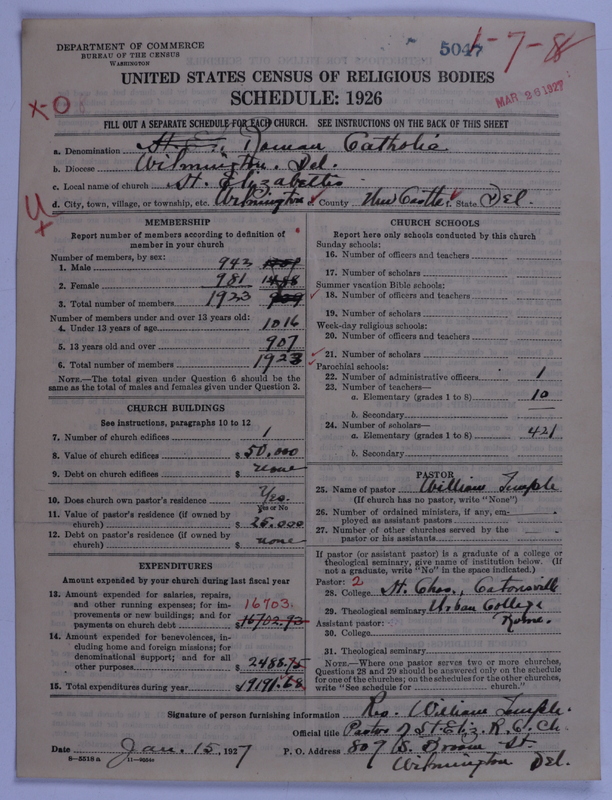 DEPARTMENT OF COMMERCE
BUREAU OF THE CENSUS
WASHINGTON
5047
1-7-8
UNITED STATES CENSUS OF RELIGIOUS BODIES
SCHEDULE: 1926
MAR 28 1927
X-O
FILL OUT A SEPARATE SCHEDULE FOR EACH CHURCH. SEE INSTRUCTIONS ON THE BACK OF THIS SHEET
a. Denomination Roman Catholic
b. Diocese Wilmington, Del.
c. Local name of church St. Elizabeth's
d. City, town, village, or township, etc. Wilmington e. County New Castle f. State Del.
MEMBERSHIP
Report number of members according to definition of
member in your church
Number of members, by sex:
1. Male 942
2. Female 981
3. Total number of members 1923
Number of members under and over 13 years old:
4. Under 13 years of age 1016
5. 13 years old and over 907
6. Total number of members 1923
NOTE.—The total given under Question 6 should be the
same as the total of males and females given under Question 3.
CHURCH BUILDINGS
See instructions, paragraphs 10 to 12
7. Number of church edifices 1
8. Value of church edifices $ 50,000
9. Debt on church edifices $ none
10. Does church own pastor's residence Yes.
Yes or No
11. Value of pastor's residence (if owned by
church) $ 25,000
12. Debt on pastor's residence (if owned by
church) $ none
EXPENDITURES
Amount expended by your church during last fiscal year
13. Amount expended for salaries, repairs,
and other running expenses; for im-
provements or new buildings; and for
payments on church debt $ 16703. 16702.93
14. Amount expended for benevolences, in-
cluding home and foreign missions; for
denominational support; and for all
other purposes $ 2488.75
15. Total expenditures during year $ 19191.68
CHURCH SCHOOLS
Report here only schools conducted by this church
Sunday schools:
16. Number of officers and teachers
17. Number of scholars
Summer vacation Bible schools:
18. Number of officers and teachers
19. Number of scholars
Week-day religious schools:
20. Number of officers and teachers
21. Number of scholars
Parochial schools:
22. Number of administrative officers 1
23. Number of teachers—
a. Elementary (grades 1 to 8) 10
b. Secondary
24. Number of scholars—
a. Elementary (grades 1 to 8) 421
b. Secondary
PASTOR
25. Name of pastor William Temple
(If church has no pastor, write "None")
26. Number of ordained ministers, if any, em-
ployed as assistant pastors
27. Number of other churches served by the
pastor or his assistants
If pastor (or assistant pastor) is a graduate of a college or
theological seminary, give name of institution below. (If
not a graduate, write "No" in the space indicated.)
Pastor: 2
28. College St. Chas., Catonsville
29. Theological seminary Urban College
Assistant pastor: Rome.
30. College
31. Theological seminary
NOTE.—Where one pastor serves two or more churches,
Questions 28 and 29 should be answered only on the schedule
for one of the churches; on the schedules for the other churches,
write "See schedule for church."
Signature of person furnishing information Rev. William Temple.
Official title Pastor of St. Eliz. R. C. Ch.
Date Jan. 15, 1927 P. O. Address 807 S. Broom St.
Wilmington Del.
8-5518a